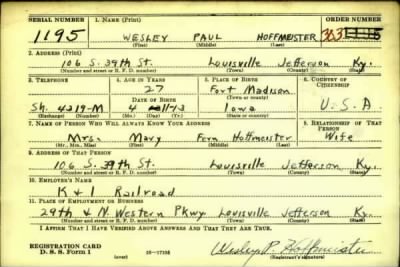 SERIAL NUMBER 1. NAME (Print) ORDER NUMBER
1195 WESLEY PAUL HOFFMEISTER
(First) (Middle) (Last)
2. ADDRESS (Print)
106 S. 39th St. Louisville Jefferson Ky.
(Number and street or R. F. D. number) (Town) (County) (State)
3. TELEPHONE 4. AGE IN YEARS 5. PLACE OF BIRTH 6. COUNTRY OF CITIZENSHIP
27 Fort Madison
DATE OF BIRTH (Town or county)
Sh. 4219-M Iowa U.S.A.
(Exchange) (Number) (Mo.) (Day) (Yr.) (State or country)
7. NAME OF PERSON WHO WILL ALWAYS KNOW YOUR ADDRESS 8. RELATIONSHIP OF THAT PERSON
Mrs. Mary Fern Hoffmeister Wife
(Mr., Mrs., Miss) (First) (Middle) (Last)
9. ADDRESS OF THAT PERSON
106 S. 39th St. Louisville Jefferson Ky.
(Number and street or R. F. D. number) (Town) (County) (State)
10. EMPLOYER'S NAME
K & I Railroad
11. PLACE OF EMPLOYMENT OR BUSINESS
29th & N. Western Pkwy. Louisville Jefferson Ky.
(Number and street or R. F. D. number) (Town) (County) (State)
I AFFIRM THAT I HAVE VERIFIED ABOVE ANSWERS AND THAT THEY ARE TRUE.
REGISTRATION CARD
D. S. S. Form 1 (over) Wesley P. Hoffmeister
(Registrant's signature)